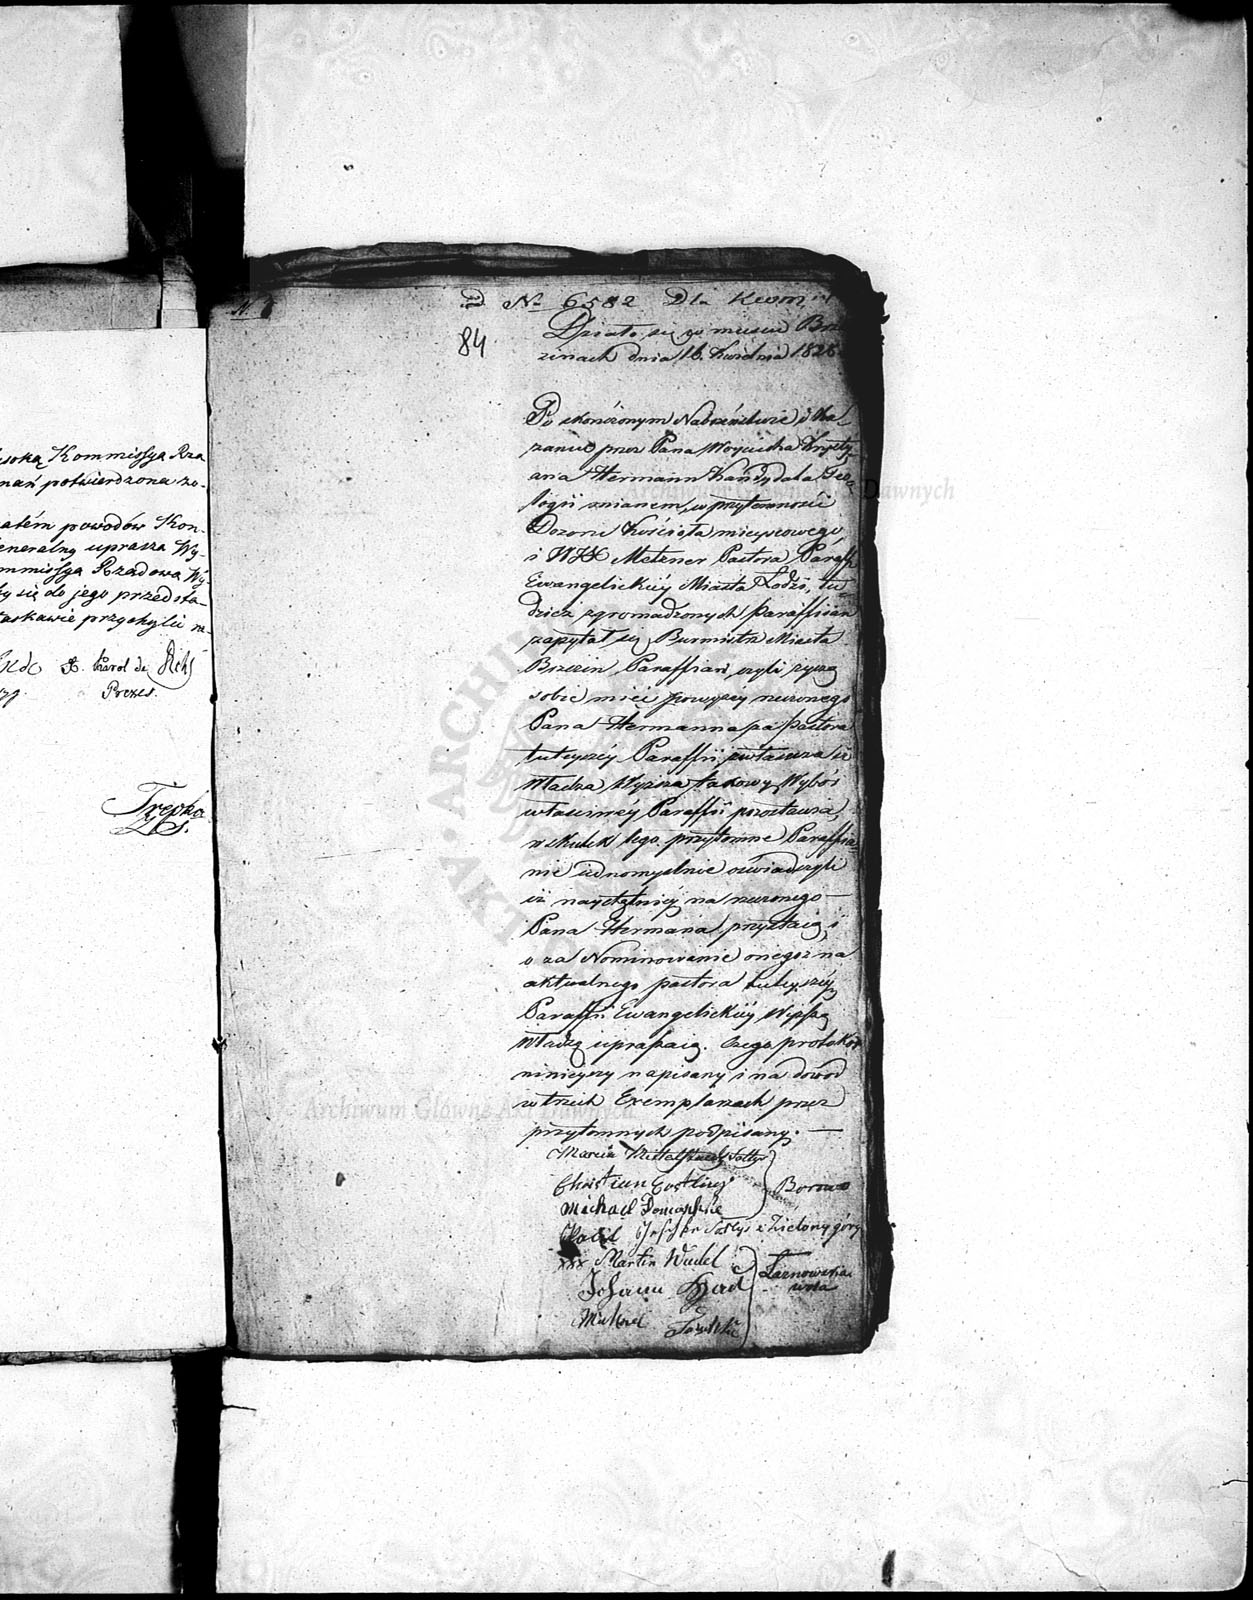 isoką Kommissya Rzą
nań potwierdzona zo-
atém powodów Kon-
eneralny uprasza Wy-
mmissya Rządowa Wy-
by się do jego przedsta-
askawie przychylić ra-
Karol de
Prezes.
Trepka
N.
D No 6582 Dla
84
Działo się w mieście Brze
zinach dnia 16. Kwietnia 1826.
Po skończonym Nabożeństwie i Ka
zaniu przez Pana Woyciecha Krysty
ana Hermann Kandydata Teo
logii mianem, w przytomności
Dozoru Kościoła mieyscowego,
i Metzner Pastora Paraffii
Ewangelickiéy Miasta Łodzi, tu
dzież zgromadzonych Paraffian
zapytał się Burmistrz Miasta
Brzezin Paraffian, czyli życzą
sobie mieć powyżéy rzeczonego
Pana Hermanna za Pastora
tuteyszéy Paraffii, zwłaszcza iż
Władza Wyższa takowy Wybór
właściwéy Paraffii pozostawia,
w skutek tego przytomne Paraffia
nie jednomyślnie oświadczyli
iż naychętniéy na rzeczonego —
Pana Hermana przystaią, i
o za Nominowanie onegoż na
aktualnego pastora tuteyszéy
Paraffii Ewangelickiéy Wyższą
Władzę upraszaią. Czego protokół
ninieyszy napisany i na dowód
w trzech Exemplarzach przez
przytomnych podpisany. —
Marcin Sołtys
Christian
Michael
Sołtys z Zielony góry
xxx Martin Wudel
Johann
Michael
Archiwum Główne Akt Dawnych
Archiwum Główne Akt Dawnych